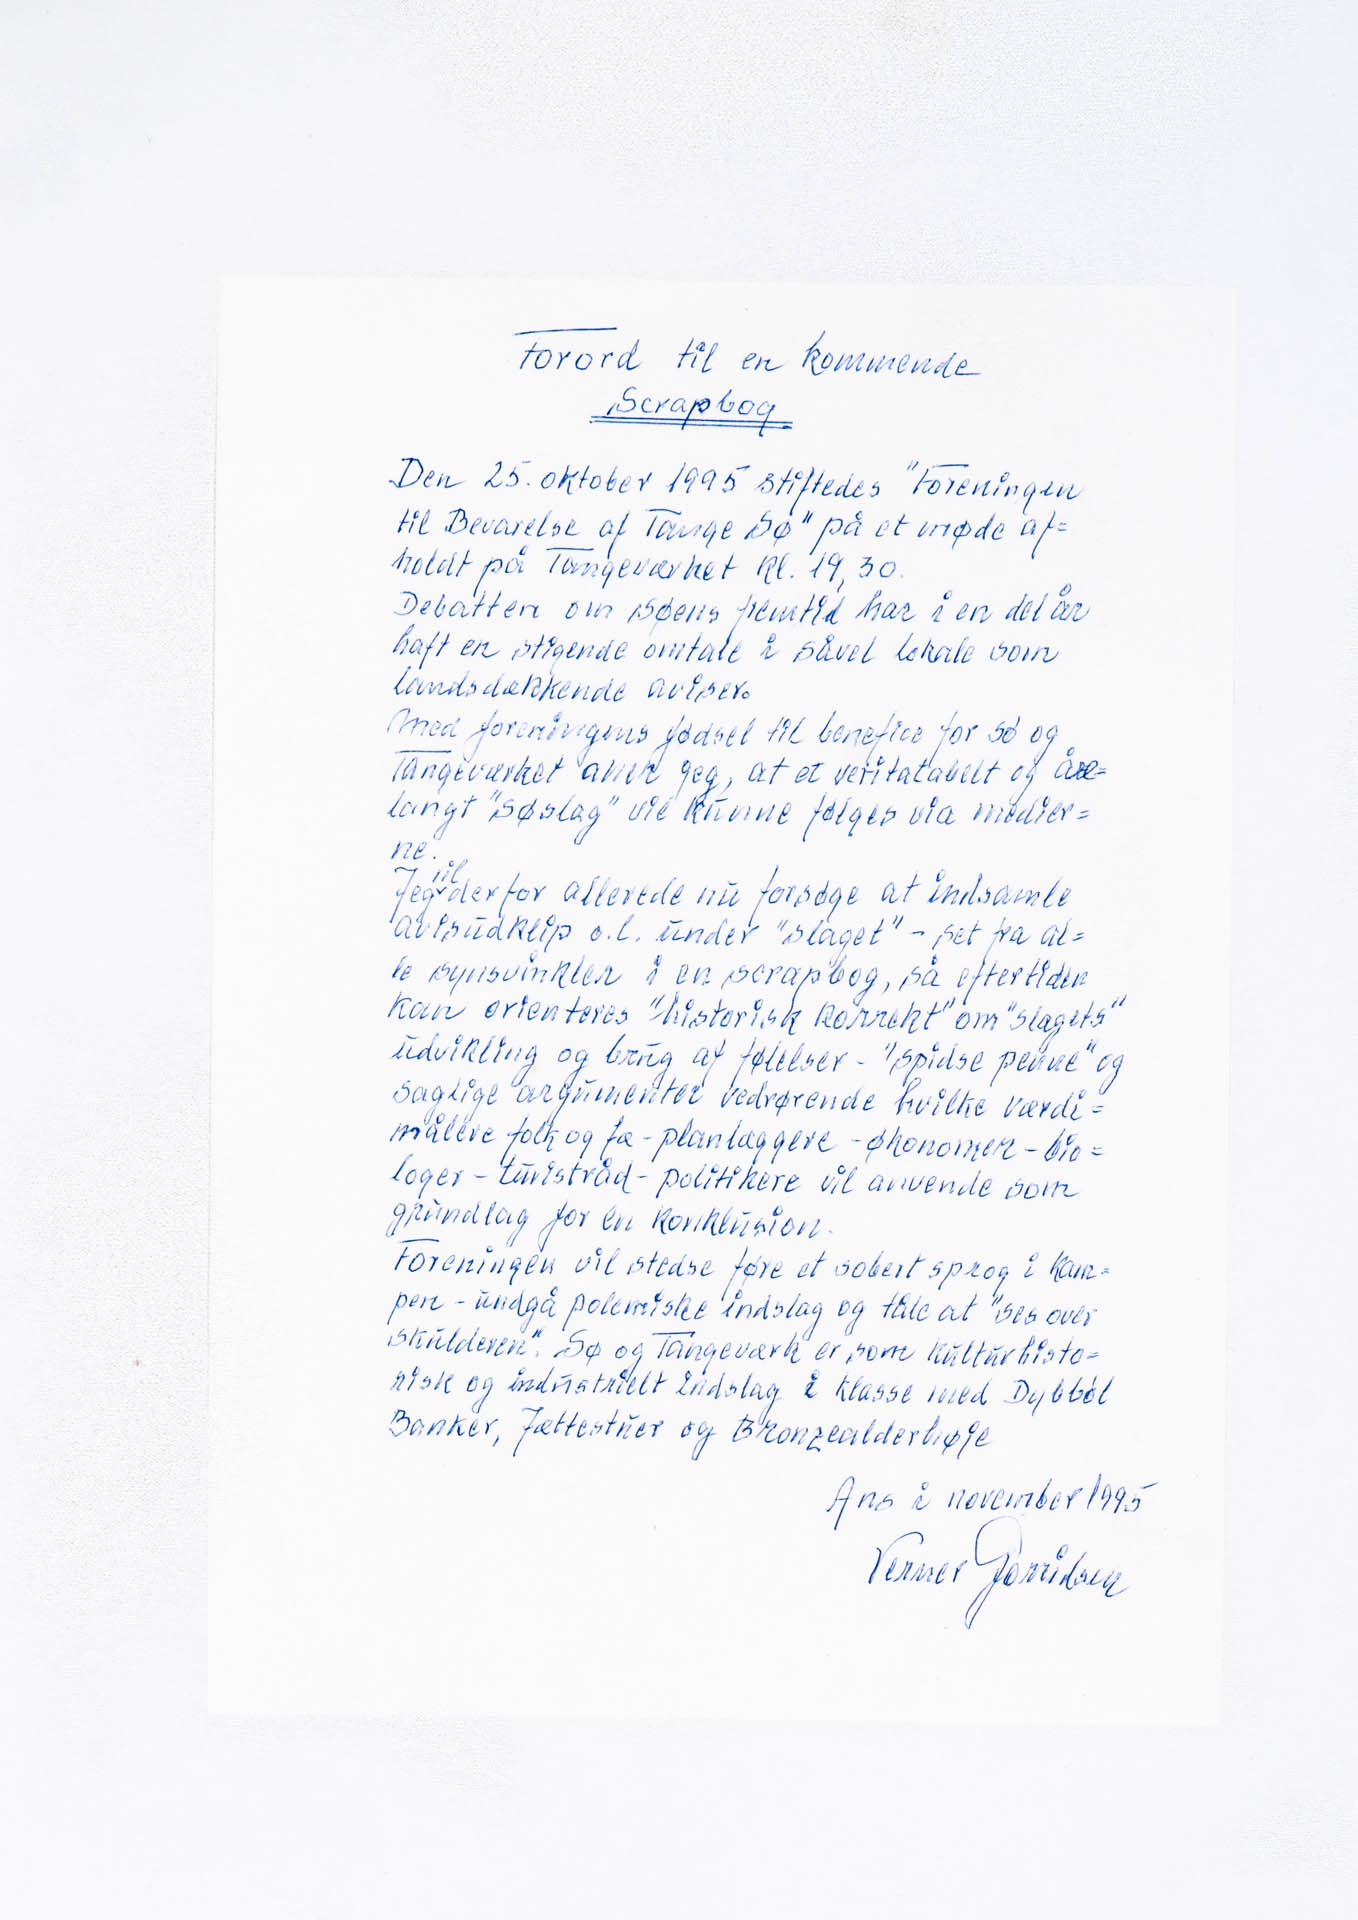 Forord til en kommende
Scrapbog
Den 25. oktober 1995 stiftedes "Foreningen
til Bevarelse af Tange Sø" på et møde af=
holdt på Tangeværket kl. 19,30.
Debatten om søens fremtid har i en del år
haft en stigende omtale i såvel lokale som
landsdækkende aviser.
Med foreningens fødsel til benefice for sø og
Tangeværket aner jeg, at et veritatabelt og åre=
langt "søslag" vil kunne følges via medier=
ne.
Jeg vil derfor allerede nu forsøge at indsamle
avisudklip o.l. under "slaget" - set fra al=
le synsvinkler i en scrapbog, så eftertiden
kan orienteres "historisk korrekt" om "slagets"
udvikling og brug af følelser - "spidse penne" og
saglige argumenter vedrørende hvilke værdi=
målere folk og fæ - planlæggere - økonomer - bio=
loger - turistråd - politikere vil anvende som
grundlag for en konklusion.
Foreningen vil stedse føre et sobert sprog i kam=
pen - undgå polemiske indslag og tåle at "ses over
skulderen". Sø og Tangeværk er som kulturhisto=
risk og industrielt indslag i klasse med Dybbøl
Banker, Jættestuer og Bronzealderhøje
Ans i november 1995
Verner